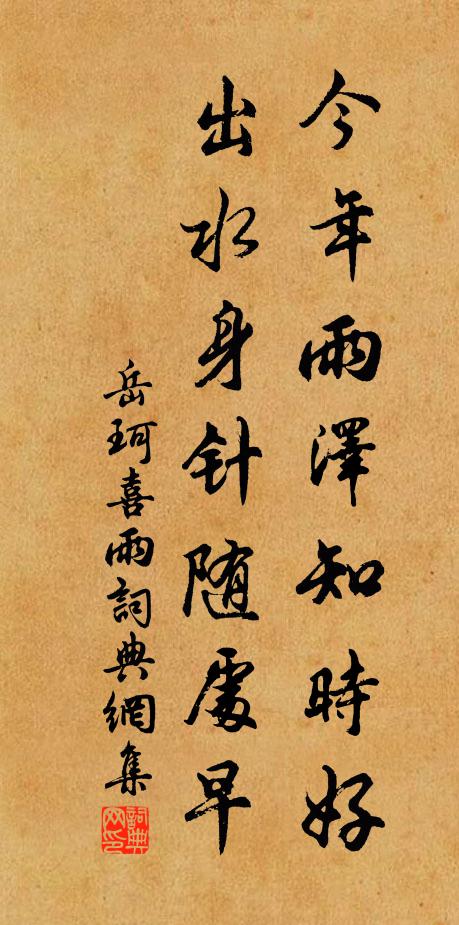 今年雨澤知時好
出水身针随處早
岳珂喜雨詞典網集
詞典网印